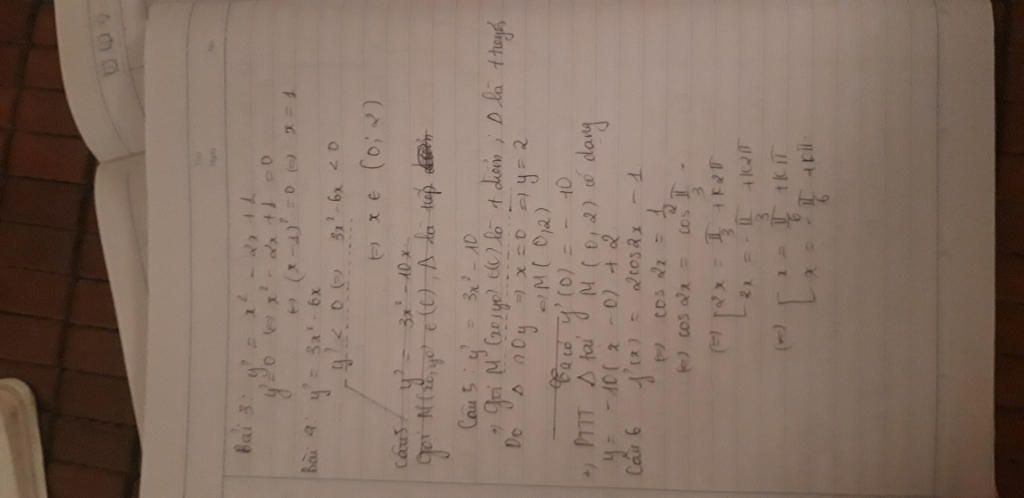 Bài 3: y' = x² - 2x + 1
y' = 0 (=) x² - 2x + 1 = 0
(=) (x-1)² = 0 (=) x = 1
Bài 4: y' = 3x² - 6x
y' < 0 (=) 3x² - 6x < 0
(=) x ∈ (0; 2)
Câu 5 y' = 3x² - 10x
Gọi M(x₀, y₀) ∈ (C), Δ là tiếp
Câu 5: y' = 3x² - 10
+) Gọi M (x₀, y₀) ∈ (C) là tiếp điểm; Δ là t tuyến
Do Δ ∩ Oy => x = 0 => y = 2
=> M (0, 2)
Ta có y'(0) = - 10
+) PTTT Δ tại M (0, 2) có dạng
y = -10(x - 0) + 2
Câu 6 y'(x) = 2cos2x - 1
(=) cos 2x = 1/2
(=) cos2x = cos π/3
(=) [ 2x = π/3 + k2π
2x = - π/3 + k2π
(=) [ x = π/6 + kπ
x = - π/6 + kπ.